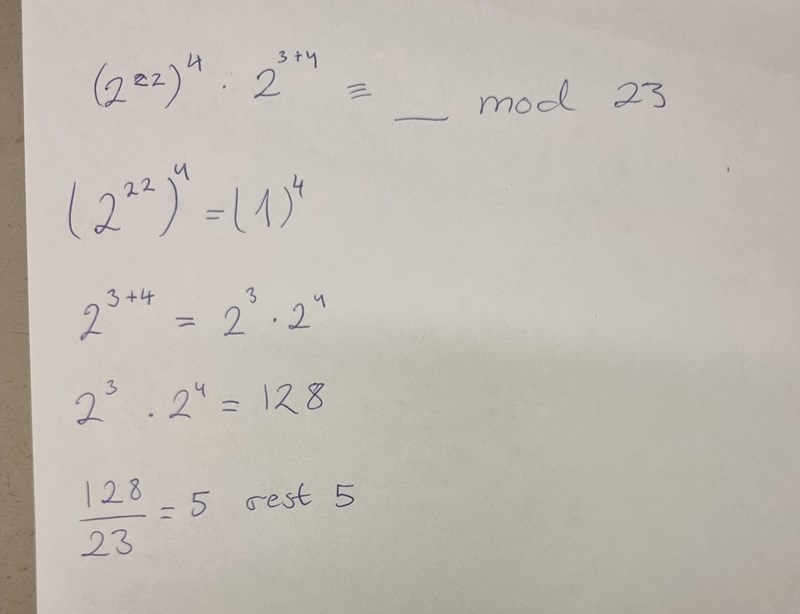 (2²²)⁴ · 2³⁺⁴ ≡ __ mod 23
(2²²)⁴ = (1)⁴
2³⁺⁴ = 2³ · 2⁴
2³ · 2⁴ = 128
128/23 = 5 rest 5